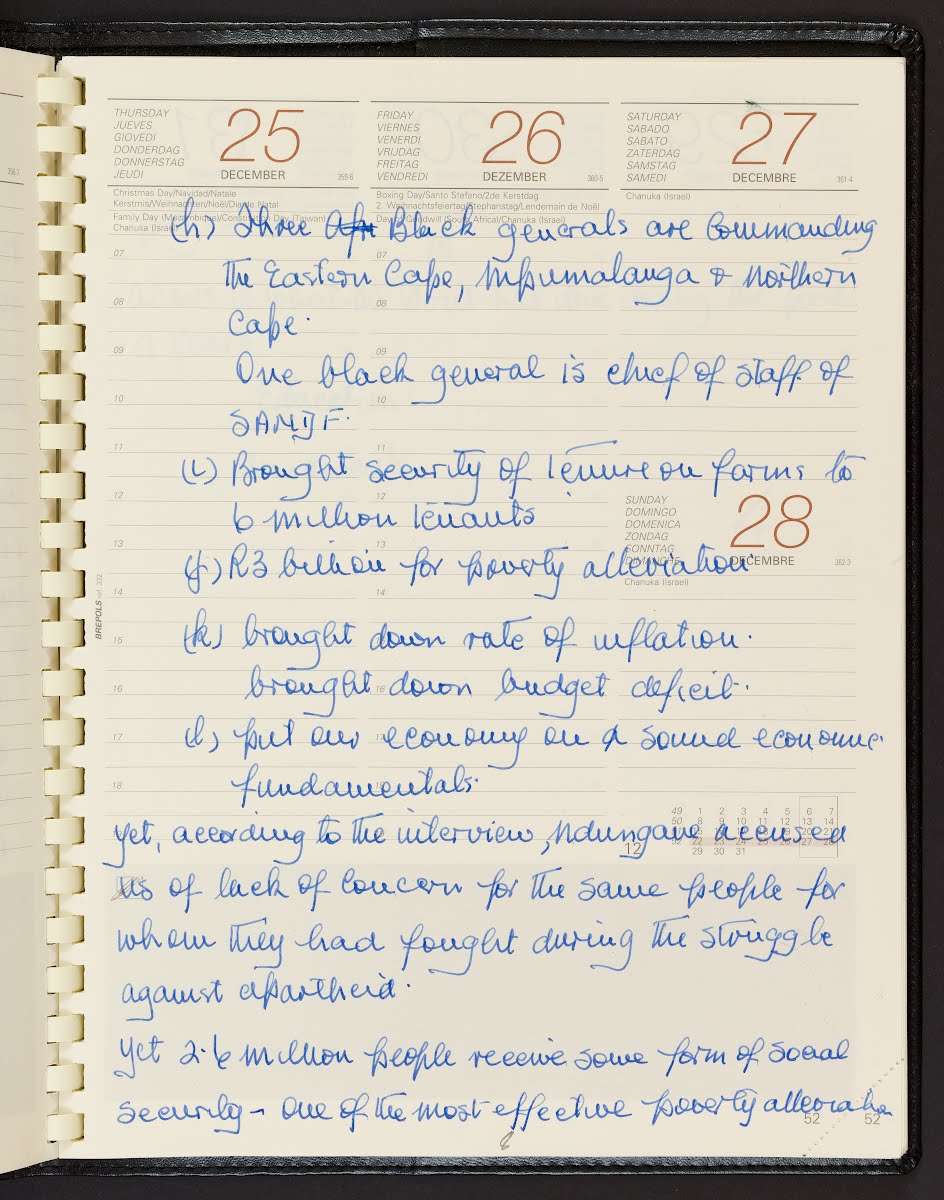 THURSDAY
JUEVES
GIOVEDI
DONDERDAG
DONNERSTAG
JEUDI
25
DECEMBER
359-6
Christmas Day/Navidad/Natale
Kerstmis/Weihnachten/Noël/Dia de Natal
Family Day (Mozambique)/Constitution Day (Taiwan)
Chanuka (Israel)
FRIDAY
VIERNES
VENERDI
VRIJDAG
FREITAG
VENDREDI
26
DEZEMBER
360-5
Boxing Day/Santo Stefano/2de Kerstdag
2. Weihnachtsfeiertag/Stephanstag/Lendemain de Noël
Day of Goodwill (South Africa)/Chanuka (Israel)
SATURDAY
SABADO
SABATO
ZATERDAG
SAMSTAG
SAMEDI
27
DECEMBRE
361-4
Chanuka (Israel)
(h) Three Afri Black generals are commanding
the Eastern Cape, Mpumalanga & Northern
Cape.
One black general is chief of staff of
SANDF.
(i) Brought security of tenure on farms to
6 million tenants
SUNDAY
DOMINGO
DOMENICA
ZONDAG
SONNTAG
DIMANCHE
28
DECEMBRE
362-3
Chanuka (Israel)
(j) R3 billion for poverty alleviation
(k) brought down rate of inflation.
brought down budget deficit.
(l) put our economy on a sound economic
fundamentals.
Yet, according to the interview, Ndungane accused
us of lack of concern for the same people for
whom they had fought during the struggle
against apartheid.
Yet 2.6 million people receive some form of social
security - one of the most effective poverty alleviation
07
08
09
10
11
12
13
14
15
16
17
18
BREPOLS ref. 332
12
49 1 2 3 4 5 6 7
50 8 9 10 11 12 13 14
51 15 16 17 18 19 20 21
52 22 23 24 25 26 27 28
29 30 31
52
52
8